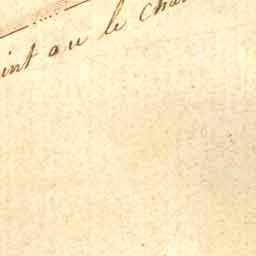 int au le cha